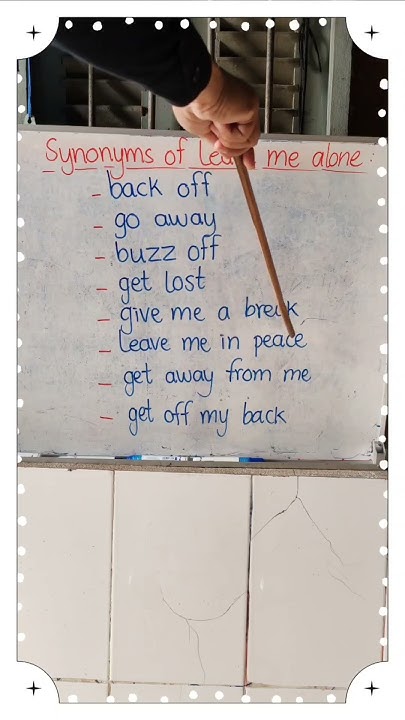 Synonyms of Leave me alone:
- back off
- go away
- buzz off
- get lost
- give me a break
- Leave me in peace
- get away from me
- get off my back